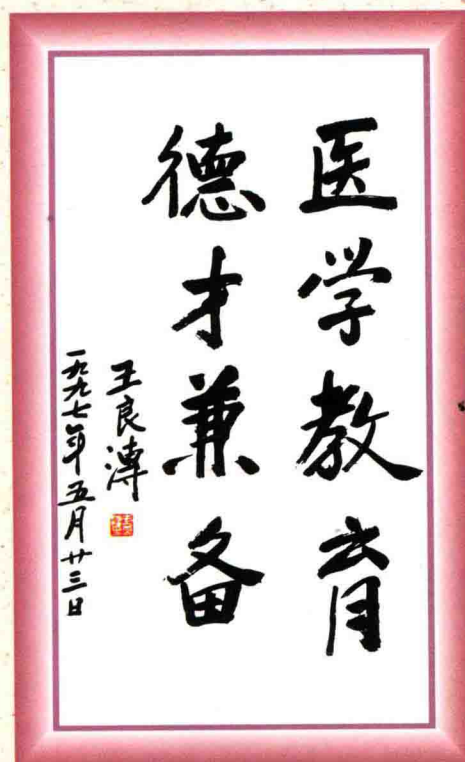 医学教育
德才兼备
王良溥
一九九七年五月廿三日